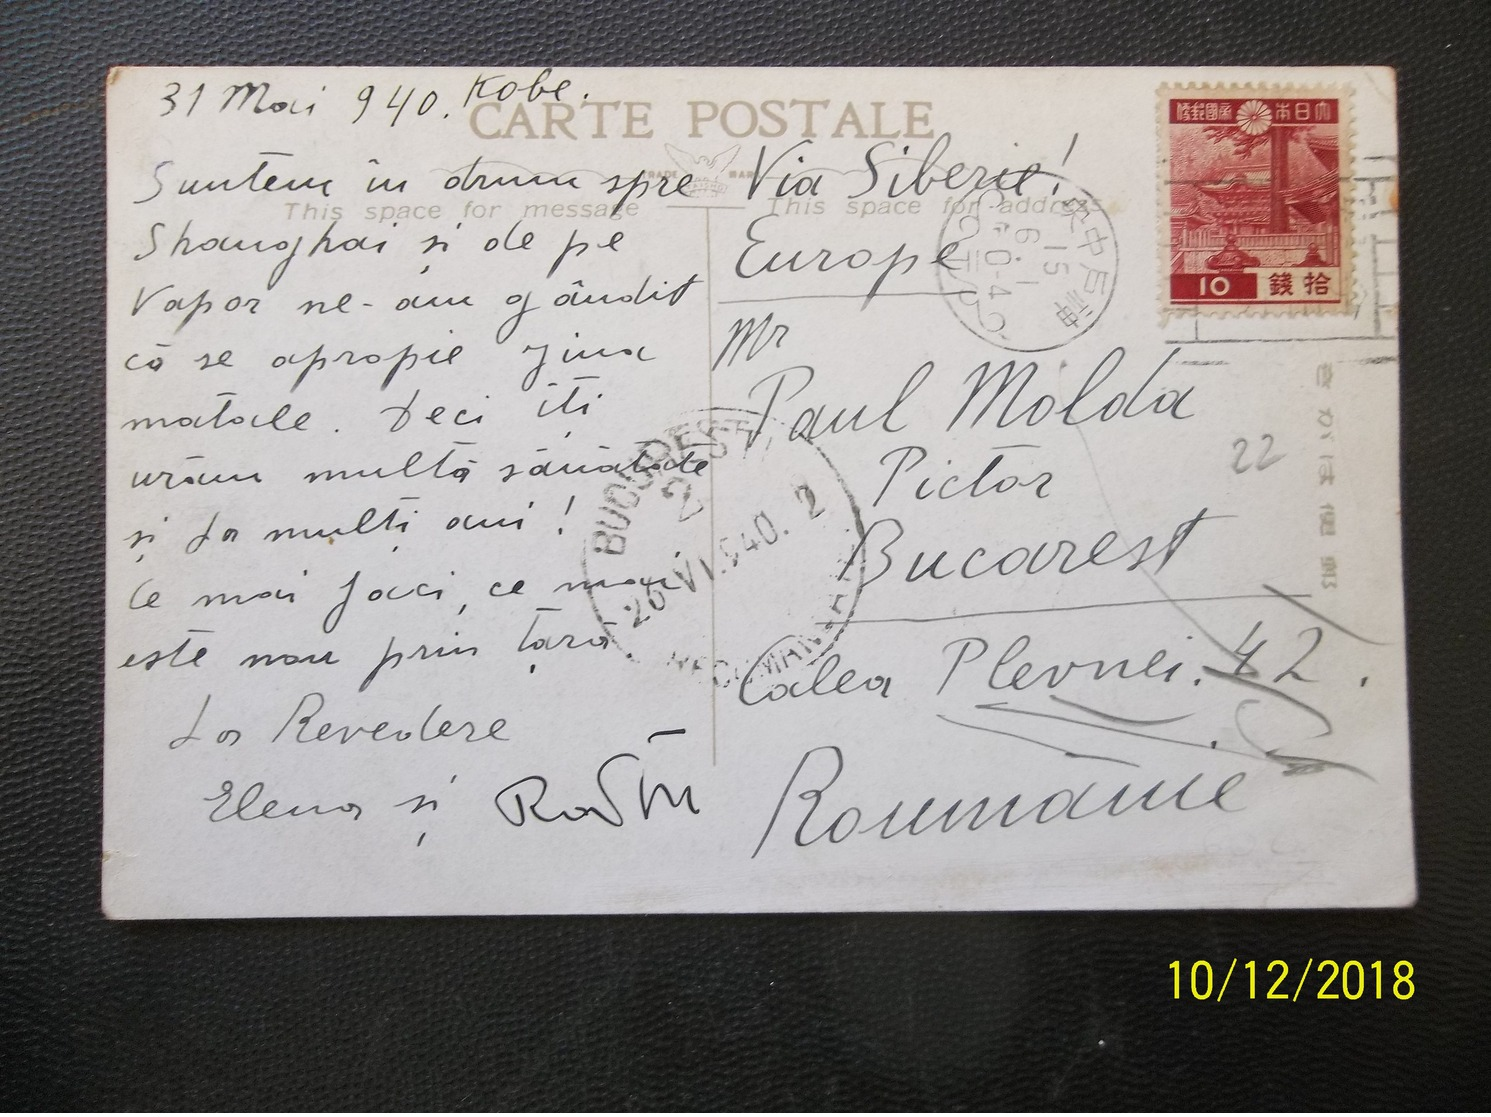 31 Mai 940. Kobe.
CARTE POSTALE
TRADE MARK
This space for message
This space for address
Suntem în drum spre
Shanghai și de pe
vapor ne-am gândit
că se apropie ziua
matale. Deci îți
urăm multă sănătate
și La mulți ani!
Ce mai faci, ce mai
este nou prin țară.
La Revedere
Elena și
Via Siberie!
Europe
Mr
Paul Molda
Pictor
Bucarest
Calea Plevnei. 42.
Roumanie
22
大日本帝國郵便
10 拾錢
神戸中央
15
6.1
0-4
BUCUREȘTI
2
26 VI.940. 2
きかは便郵
10/12/2018